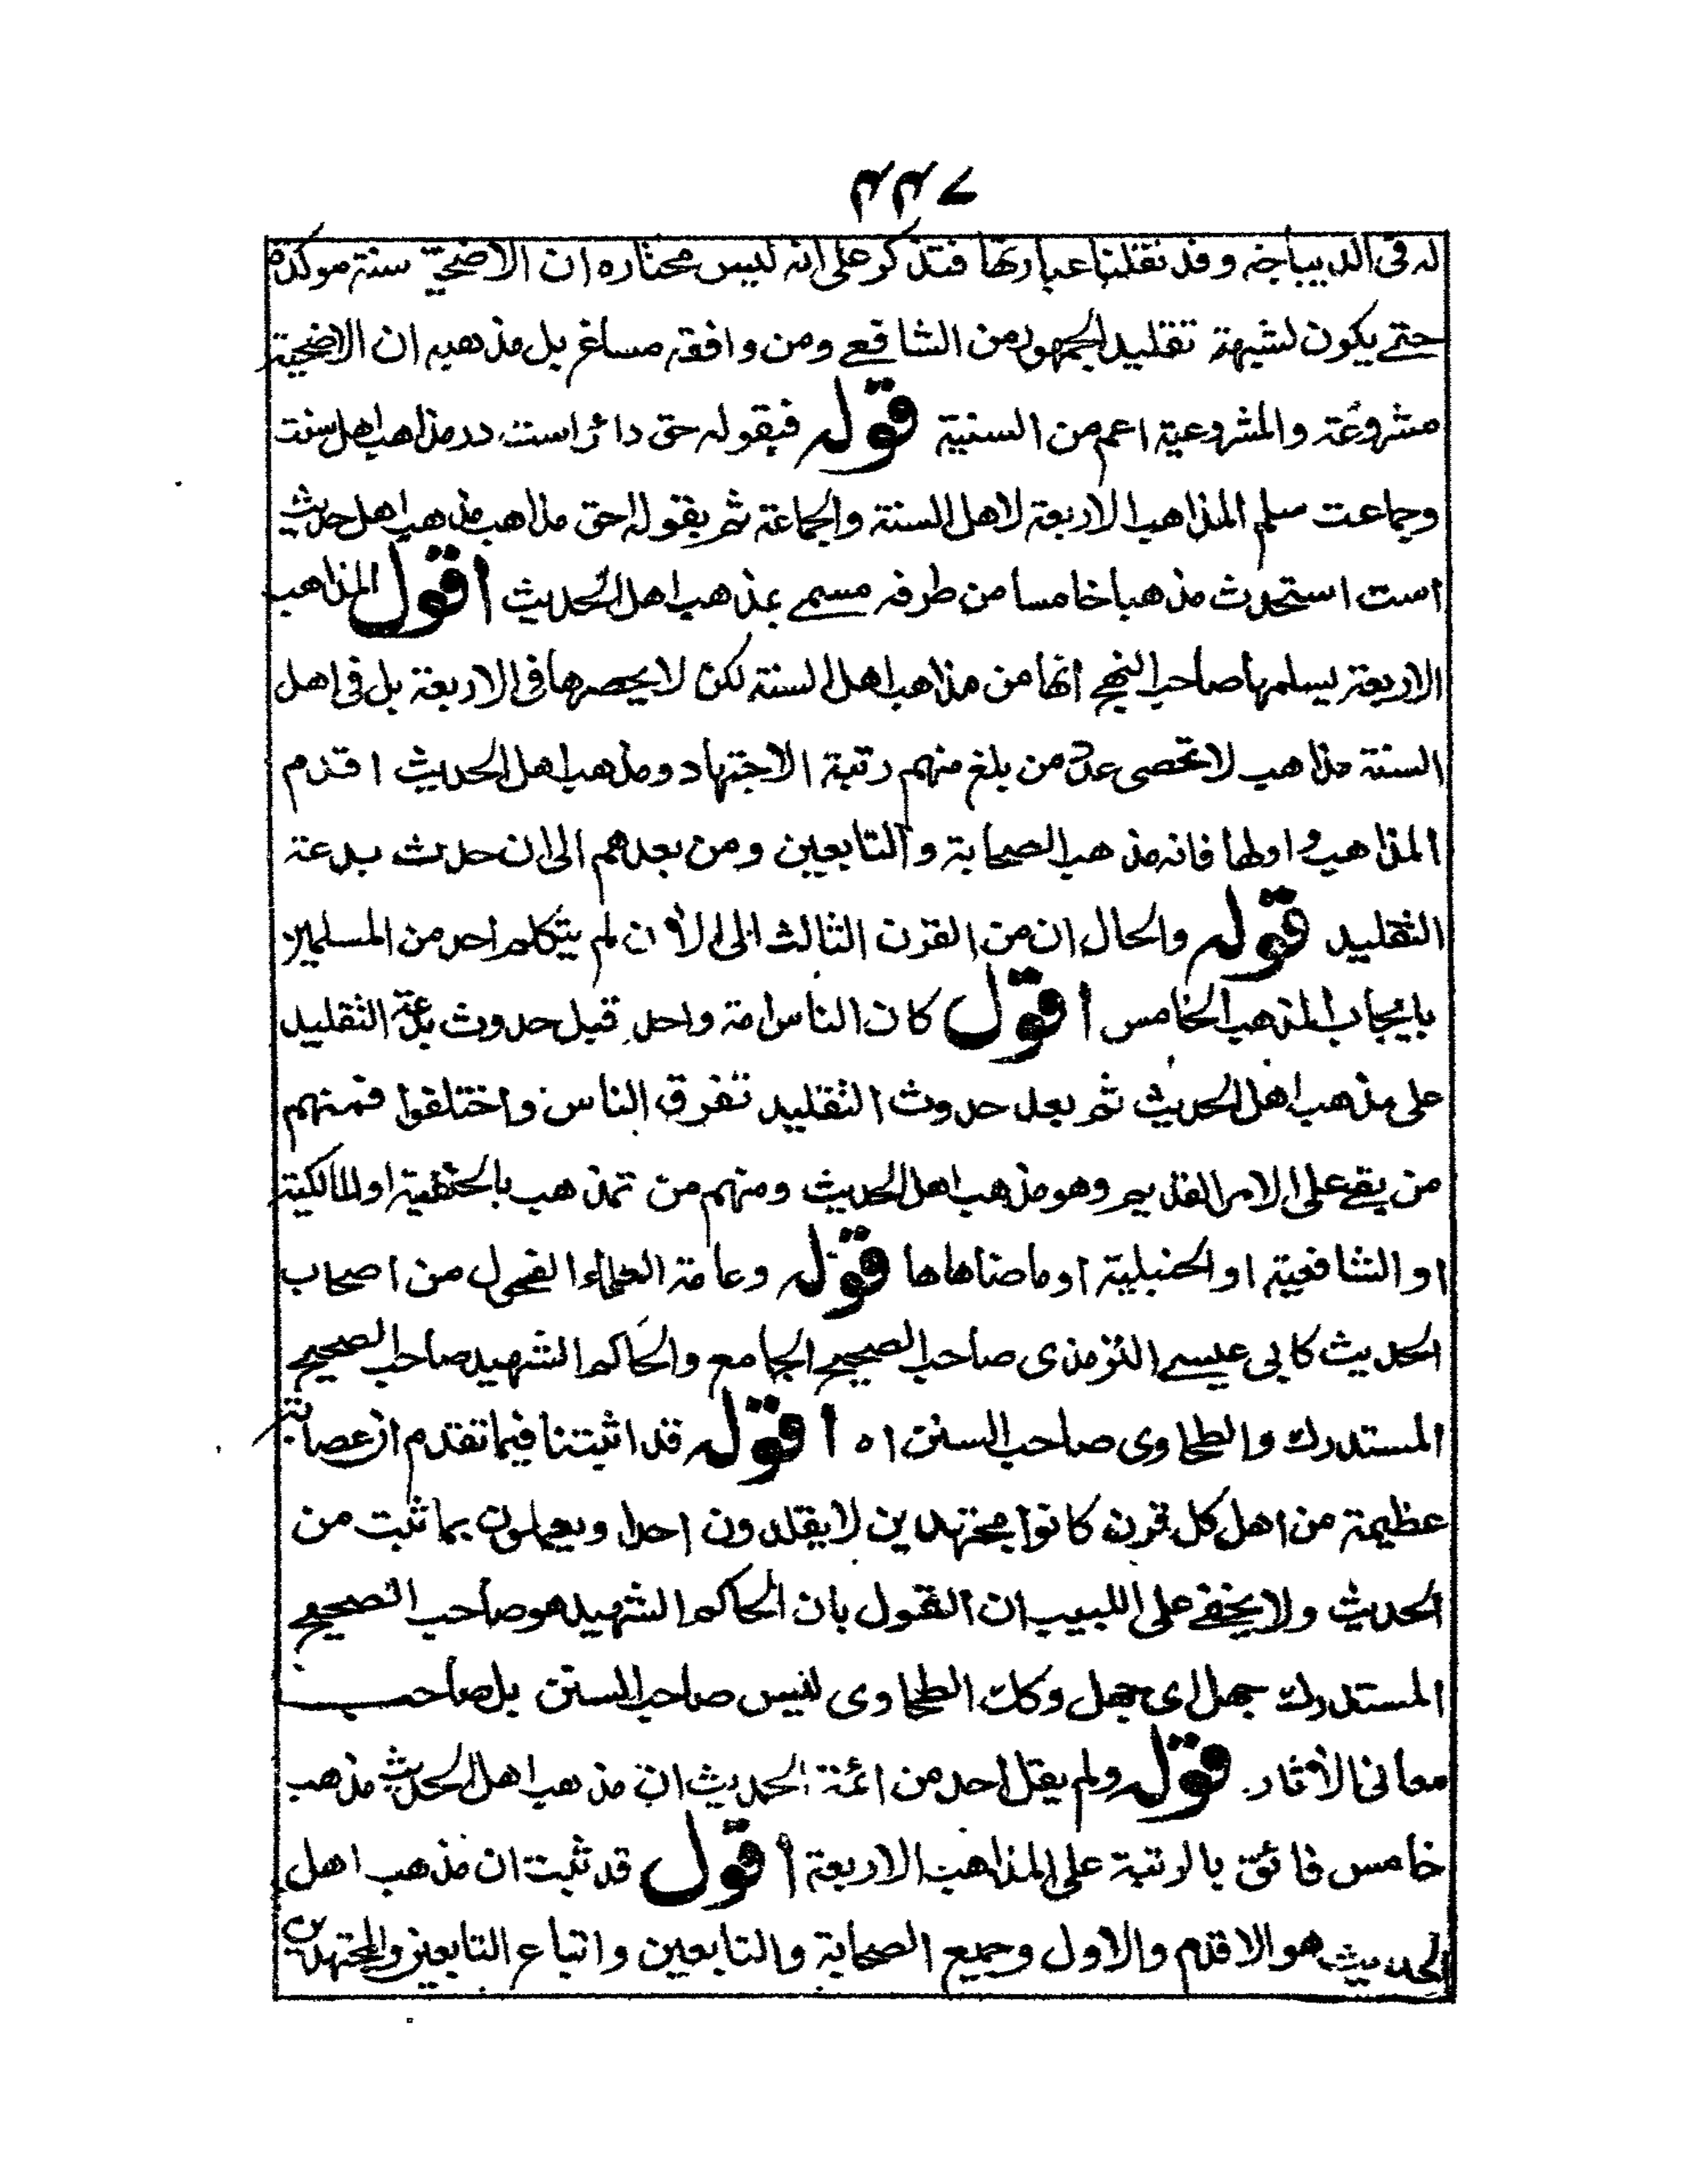 ۴۴۷
له فى الديباجة وقد نقلنا عبارتها فتذكر على انه ليس مختاره ان الاضحية سنة موكدة
حتے يكون لشبهة تقليد الجمهور من الشافعے ومن وافقه مساغ بل مذهبه ان الاضحية
مشروعة والمشروعية اعم من السنية قوله فبقوله حق دائر است در مذاهب اهل سنت
وجماعت سلم المذاهب الاربعة لاهل السنة والجماعة ثم بقوله احق مذاهب مذهب اهل حديث
است استحدث مذهبا خامسا من طرفه مسمے بمذهب اهل الحديث اقول المذاهب
الاربعة يسلمها صاحب النهج انها من مذاهب اهل السنة لكن لا يحصرها فى الاربعة بل فى اهل
السنة مذاهب لا تحصى عدد من بلغ منهم رتبة الاجتهاد ومذهب اهل الحديث اقدم
المذاهب واولها فانه مذهب الصحابة والتابعين ومن بعدهم الى ان حدث بدعة
التقليد قوله والحال ان من القرن الثالث الى الآن لم يتكلم احد من المسلمين
بايجاب المذهب الخامس اقول كان الناس امة واحدة قبل حدوث بدعة التقليد
على مذهب اهل الحديث ثم بعد حدوث التقليد تفرق الناس واختلفوا فمنهم
من بقے على الامر القديم وهو مذهب اهل الحديث ومنهم من تمذهب بالحنفية او المالكية
او الشافعية او الحنبلية او ما ضاهاها قوله وعامة العلماء الفحول من اصحاب
الحديث كابى عيسے الترمذى صاحب الصحيح الجامع والحاكم الشهيد صاحب الصحيح
المستدرك والطحاوى صاحب السنن اه اقوله قد اثبتنا فيما تقدم ان عصابة
عظيمة من اهل كل قرن كانوا مجتهدين لا يقلدون احدا ويعملون بما ثبت من
الحديث ولا يخفے على اللبيب ان القول بان الحاكم الشهيد هو صاحب الصحيح
المستدرك جهل اى جهل وكك الطحاوى ليس صاحب السنن بل صاحب
معانى الآثار. قوله ولم يقل احد من ائمة الحديث ان مذهب اهل الحديث مذهب
خامس فائق بالرتبة على المذاهب الاربعة اقول قد ثبت ان مذهب اهل
الحديث هو الاقدم والاول وجميع الصحابة والتابعين واتباع التابعين والمجتهدين